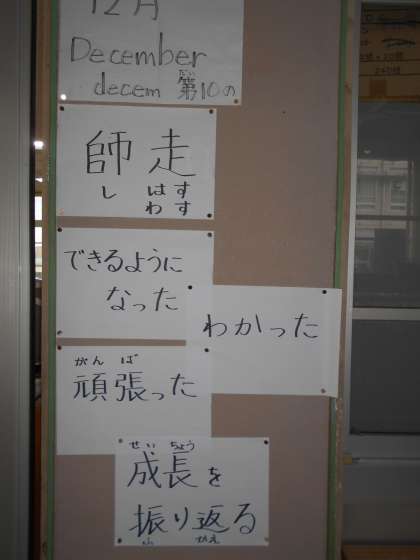 12月
December
decem 第10の
だい
師走
し はす
わす
できるように
なった
わかった
がんば
頑張った
せいちょう
成長を
振り返る
ふ かえ